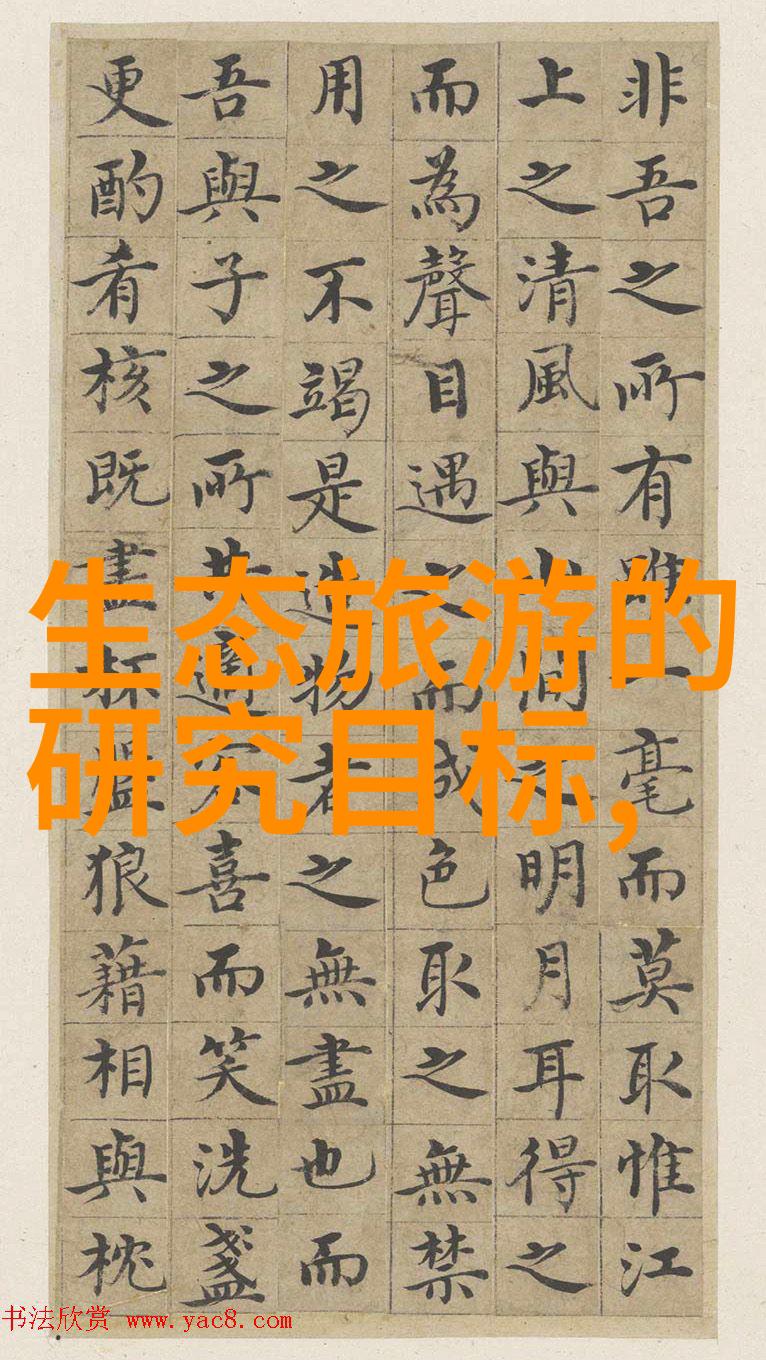 非吾之所有雖一毫而莫取惟江
上之清風與山間之明月耳得之
而為聲目遇之而成色取之無禁
用之不竭是造物者之無盡也而
吾與子之所共適客喜而笑洗盞
更酌肴核既盡杯盤狼藉相與枕
生态旅游的
研究目标,
书法欣赏 www.yac8.com